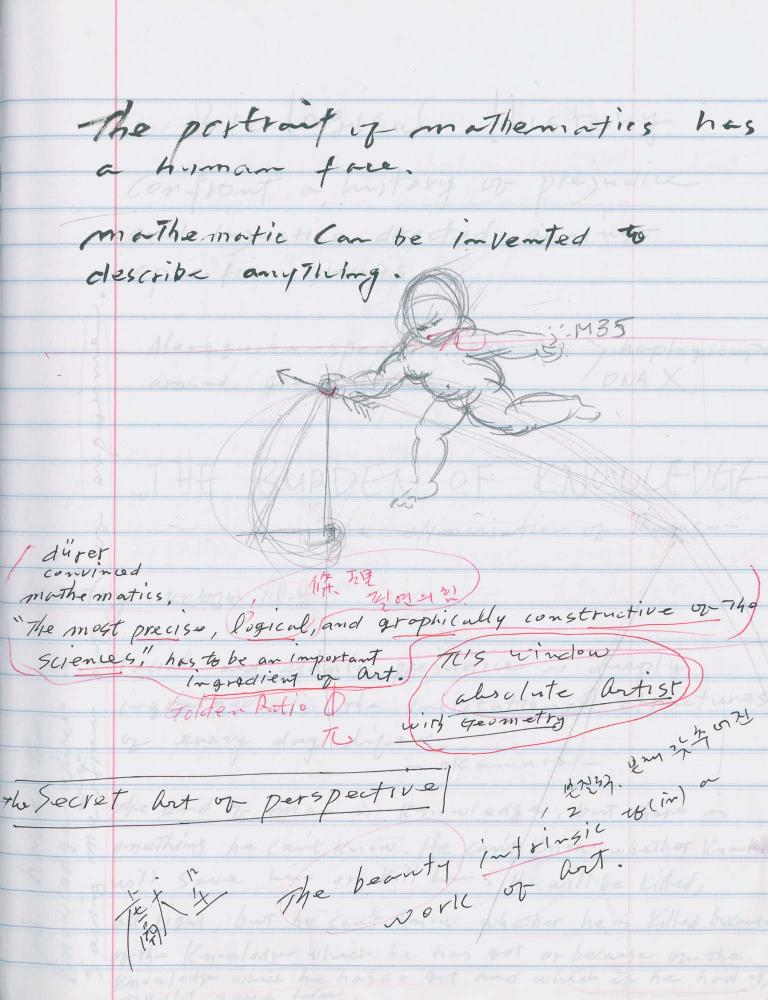 The portrait of mathematics has
a human face.
mathematic can be invented to
describe anything.
M35
dürer
convinced
mathematics,
"The most precise, logical, and graphically constructive of The
sciences," has to be an important
ingredient of Art.
필연의 힘
π's window
absolute Artist
with Geometry
Golden Ratio Φ
π
the Secret Art of perspective
The beauty intrinsic to (in) a
work of art.
THE BURDEN OF KNOWLEDGE